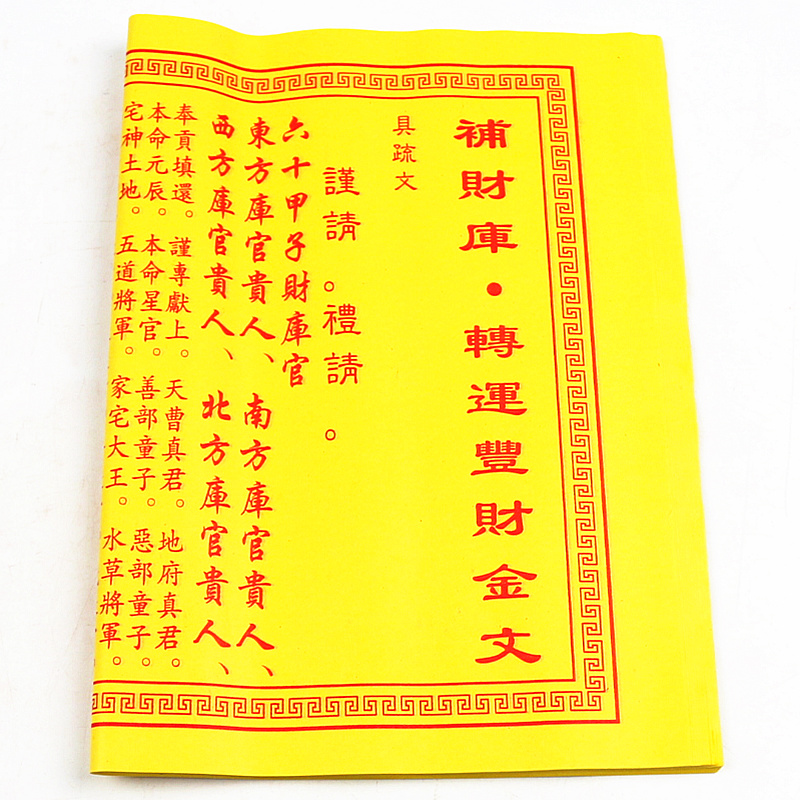 補財庫·轉運豐財金文
具疏文
謹請。禮請。
六十甲子財庫官
東方庫官貴人、南方庫官貴人、
西方庫官貴人、北方庫官貴人、
奉貢填還。謹專獻上。天曹真君。地府真君。
本命元辰。本命星官。善部童子。惡部童子。
宅神土地。五道將軍。家宅大王。水草將軍。